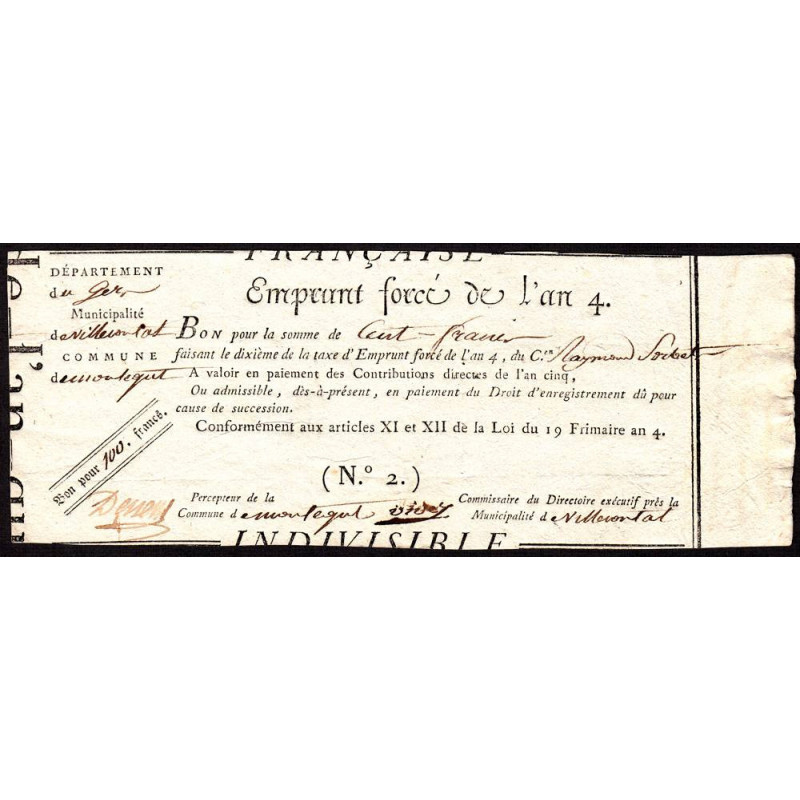 FRANÇAISE
DÉPARTEMENT
du Gers
Municipalité
de Villecontat
COMMUNE
de montegut
Bon pour 100. francs.
Emprunt forcé de l'an 4.
BON pour la somme de Cent francs
faisant le dixième de la taxe d'Emprunt forcé de l'an 4, du C.en Raymond Sorbet
A valoir en paiement des Contributions directes de l'an cinq,
Ou admissible, dès-à-présent, en paiement du Droit d'enregistrement dû pour
cause de succession.
Conformément aux articles XI et XII de la Loi du 19 Frimaire an 4.
(N.° 2.)
Percepteur de la
Commune de montegut
Commissaire du Directoire exécutif près la
Municipalité de Villecontat
INDIVISIBLE